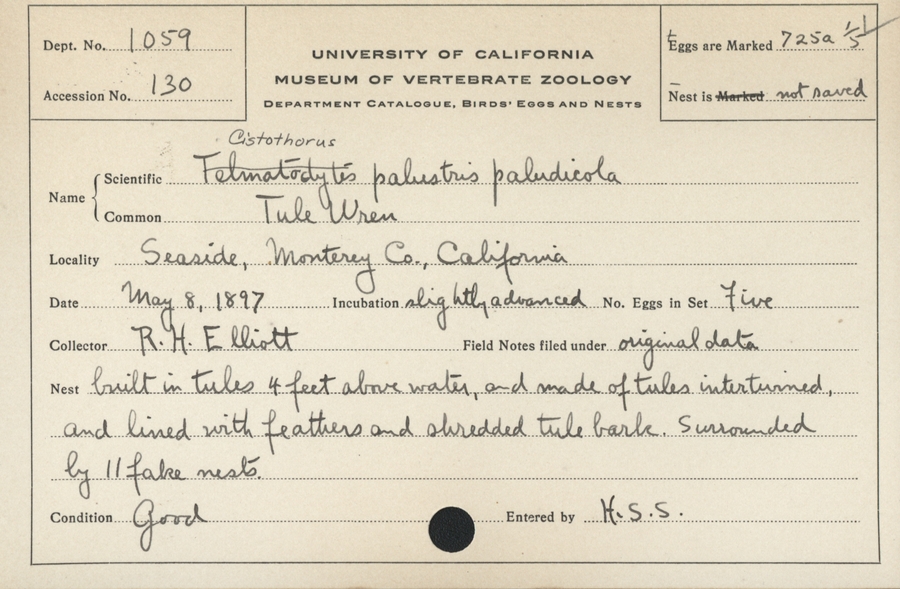 Dept. No. 1059
Accession No. 130
UNIVERSITY OF CALIFORNIA
MUSEUM OF VERTEBRATE ZOOLOGY
DEPARTMENT CATALOGUE, BIRDS' EGGS AND NESTS
Eggs are Marked 725a 1/5
Nest is Marked not saved
Cistothorus
Name Scientific Telmatodytes palustris paludicola
Common Tule Wren
Locality Seaside, Monterey Co., California
Date May 8, 1897 Incubation slightly advanced No. Eggs in Set Five
Collector R. H. Elliott Field Notes filed under original data
Nest built in tules 4 feet above water, and made of tules intertwined,
and lined with feathers and shredded tule bark. Surrounded
by 11 fake nests.
Condition Good Entered by H.S.S.